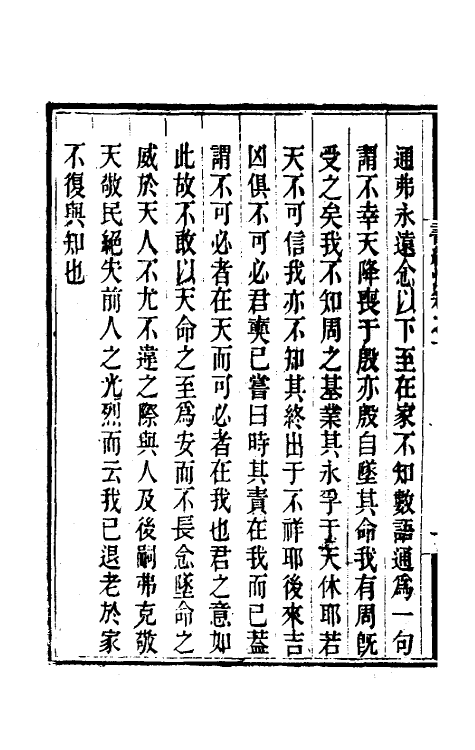 通弗永遠念以下至在家不知數語通為一句
謂不幸天降喪于殷亦殷自墜其命我有周旣
受之矣我不知周之基業其永孚于天休耶若
天不可信我亦不知其終出于不祥耶後來吉
凶俱不可必君奭已嘗曰時其責在我而已蓋
謂不可必者在天而可必者在我也君之意如
此故不敢以天命之至為安而不長念墜命之
威於天人不尤不違之際與人及後嗣弗克敬
天敬民絕失前人之光烈而云我已退老於家
不復與知也